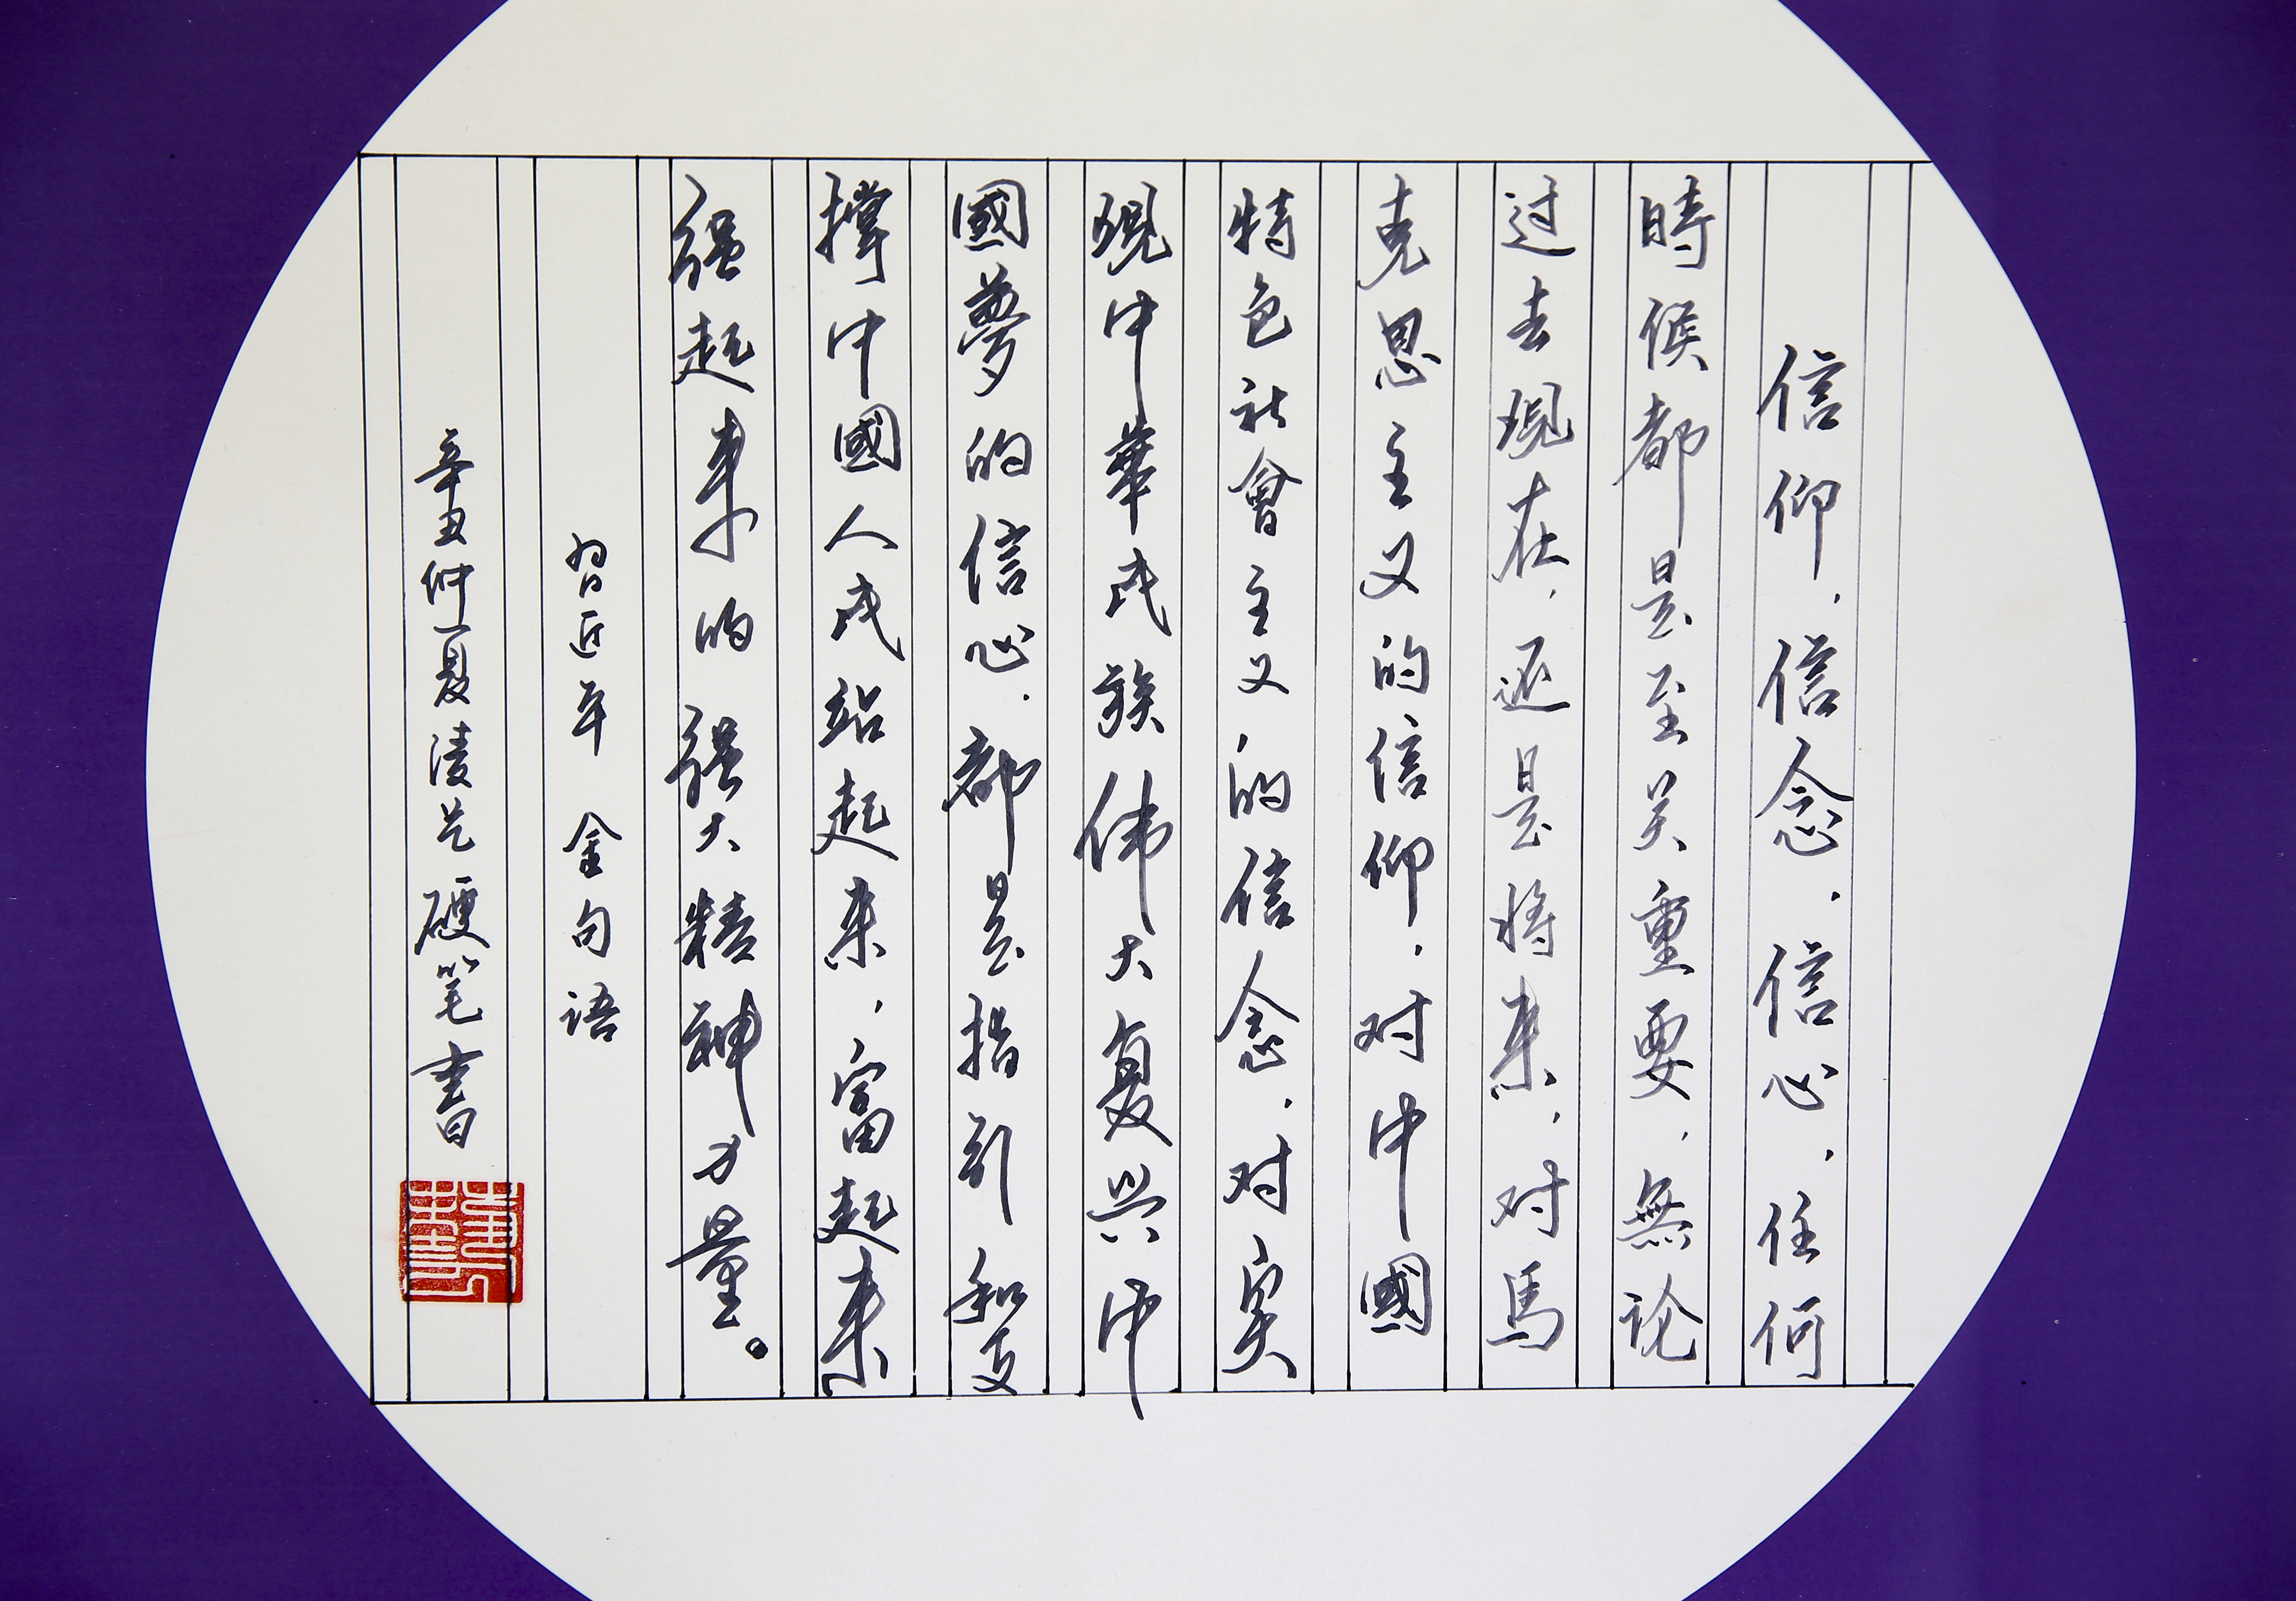 信仰，信念，信心，任何
時候都是至关重要，無论
过去现在，还是将来，对馬
克思主义的信仰，对中國
特色社會主义的信念，对实
现中华民族伟大复兴中
國夢的信心，都是指引和支
撑中國人民站起来，富起来
强起来的强大精神力量。
習近平 金句语
辛丑仲夏凌 硬笔書